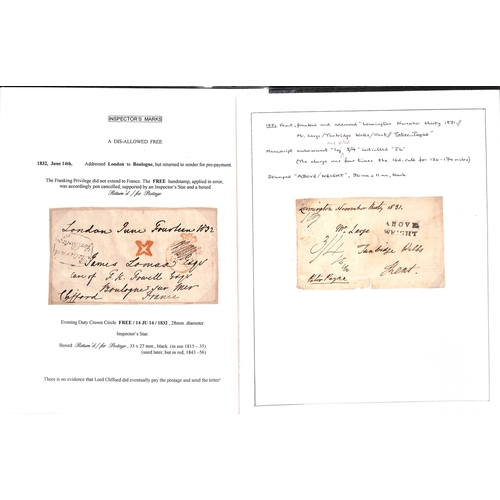 INSPECTOR'S MARKS
A DIS-ALLOWED FREE
1832, June 14th. Addressed London to Boulogne, but returned to sender for pre-payment.
The Franking Privilege did not extend to France. The FREE handstamp, applied in error,
was accordingly pen cancelled, supported by an Inspector's Star and a boxed
Return'd/for Postage
London June Fourteen 1832
James Lomax Esqr
care of T. K. Fowell Esqr
Boulogne sur Mer
Clifford France
Evening Duty Crown Circle FREE / 14 JU 14 / 1832, 28mm. diameter.
Inspector's Star.
Boxed Return'd/for Postage, 33 x 27 mm., black. (in use 1815 – 35)
(used later, but in red, 1843 -56)
There is no evidence that Lord Clifford did eventually pay the postage and send the letter!
1831 Front, franked and addressed "Leamington November thirty 1831/
Mr. Large/Tunbridge Wells/Kent/
Manuscript endorsement
(The charge was four times the rate for 120-170 miles)
Stamped "ABOVE/WEIGHT", 30mm x 11mm, black.
Leamington November thirty 1831.
ABOVE
WEIGHT
Mr. Large
Tunbridge Wells
3/4
Kent.